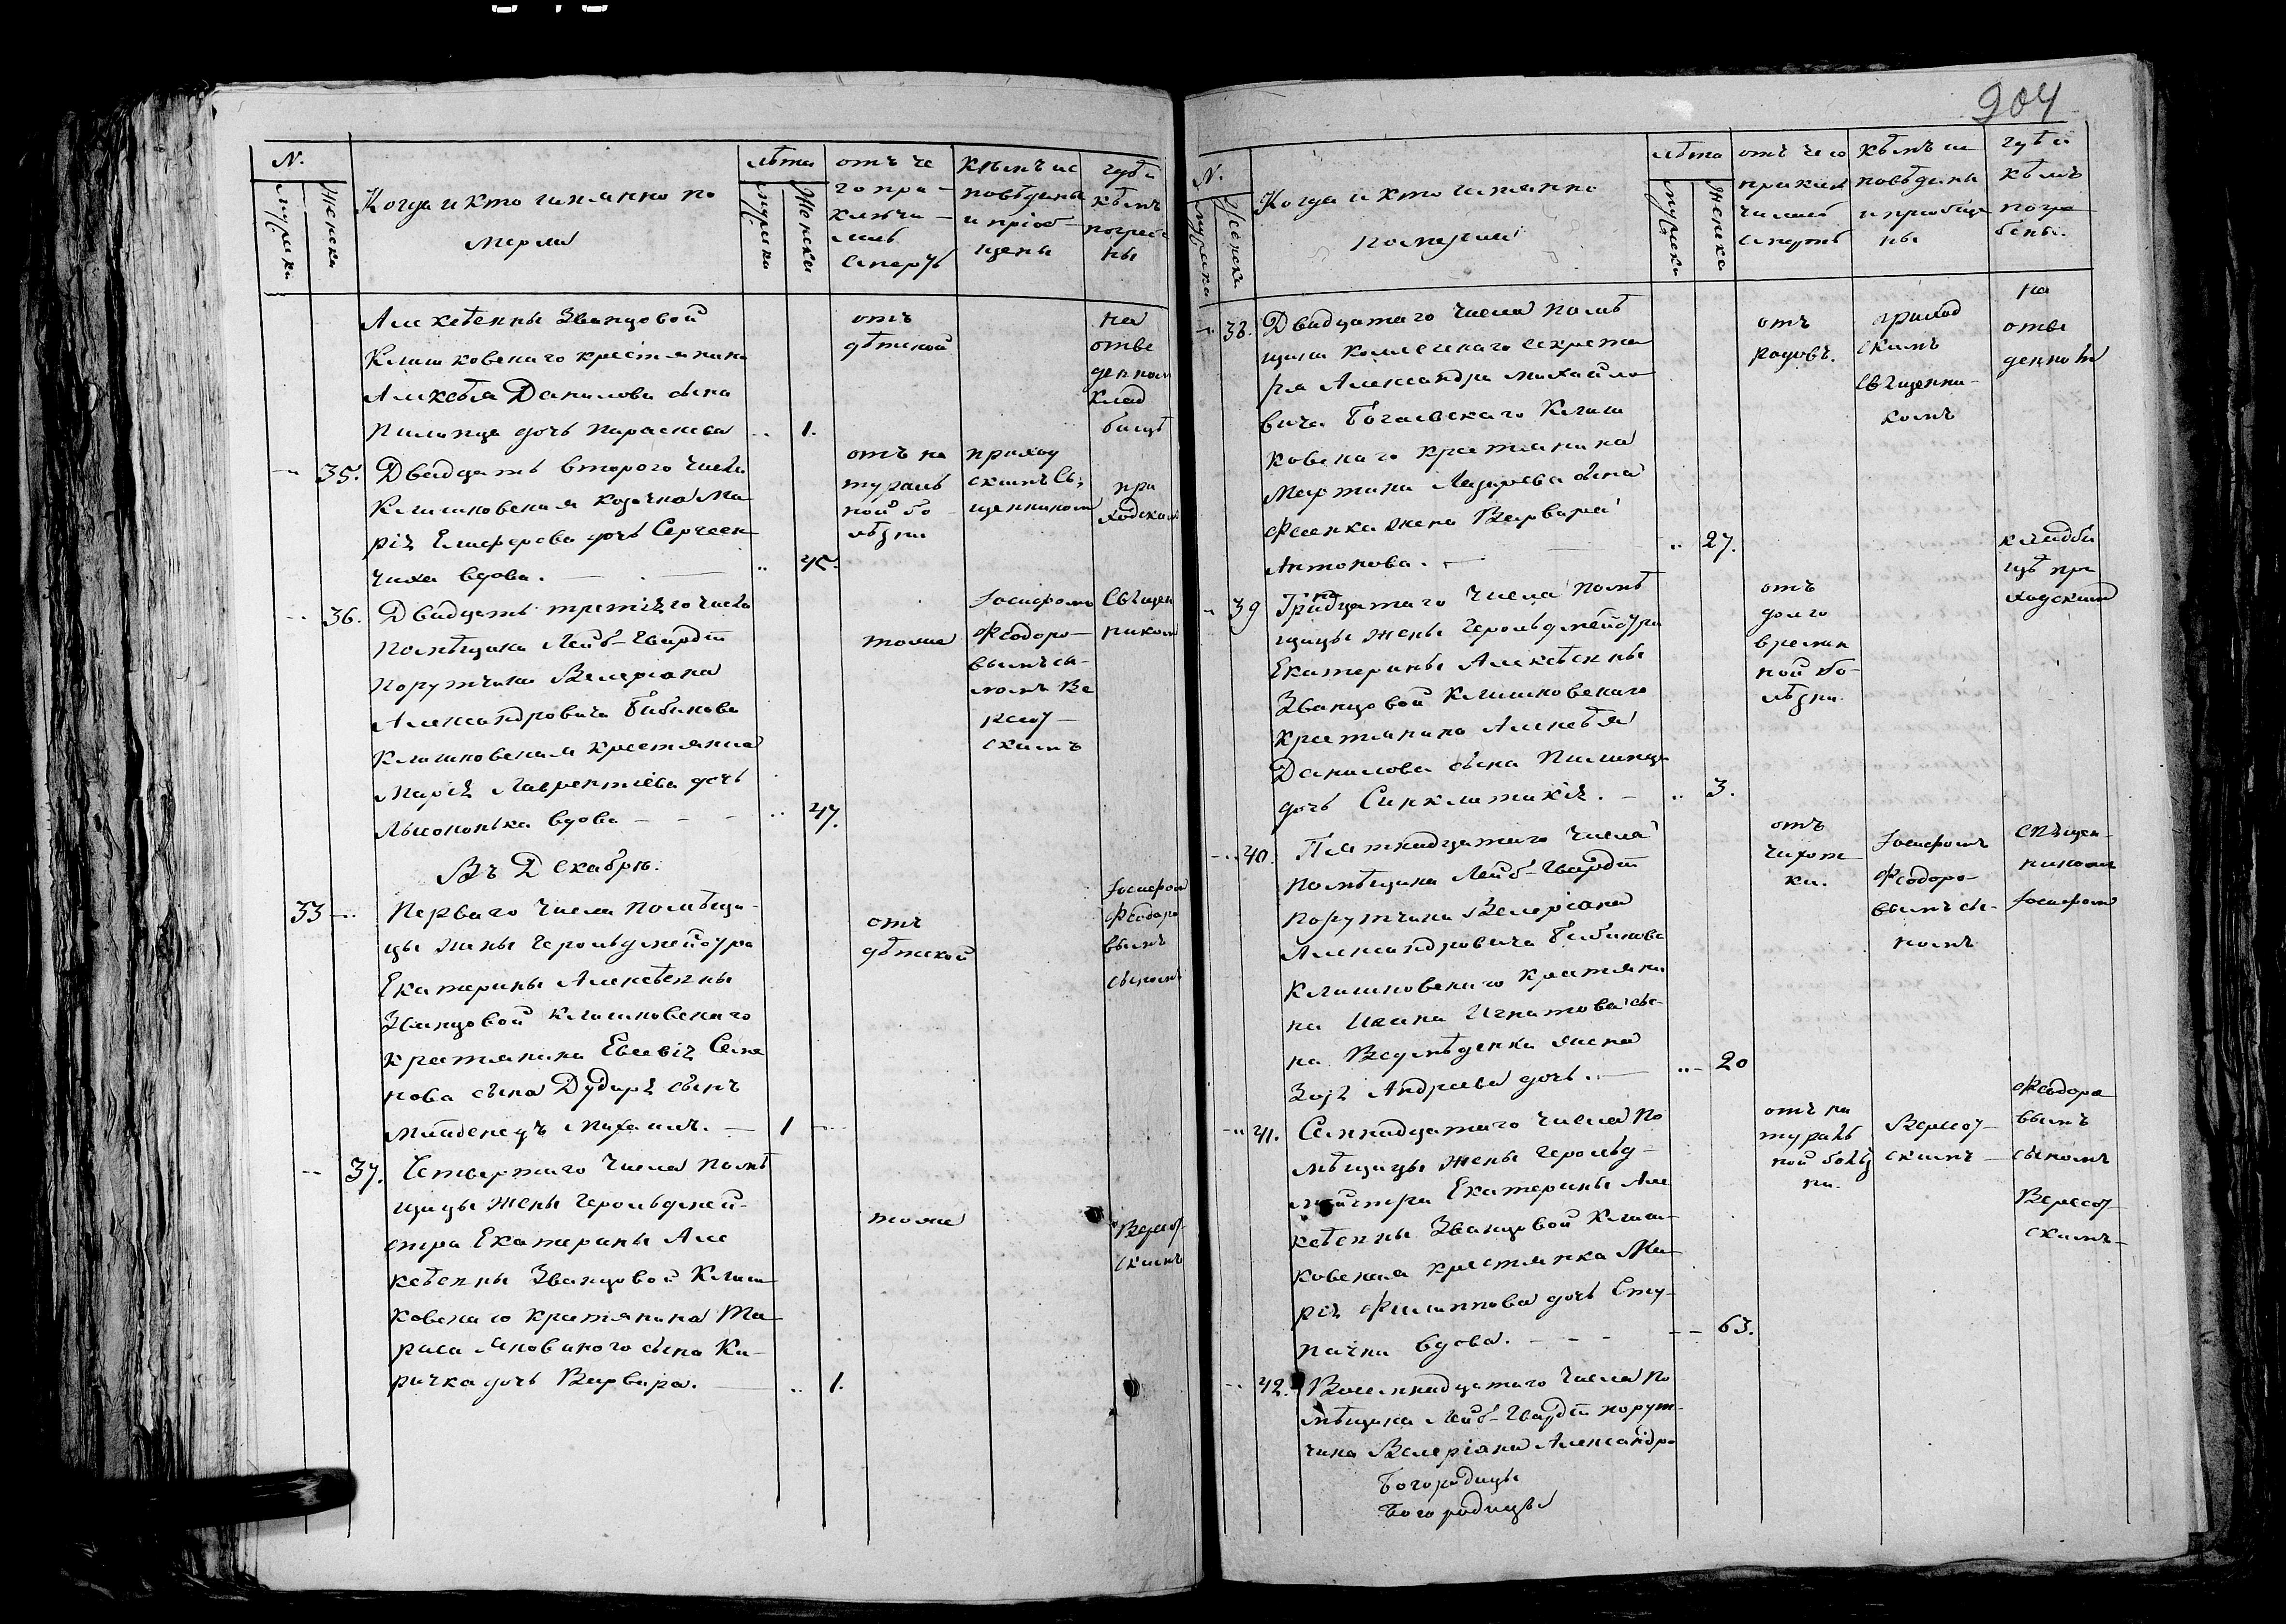 904
N.
мужска
женска
Когда и кто именно по
мерли
лѣта
мужска
женска
отъ че
го при-
ключи-
лась
смерть
кѣмъ ис
повѣдыва
и пріоб-
щены
гдѣ и
кѣмъ
погребе
ны
Алексѣевны Званцовой
Клишковскаго крестянина
Алексѣя Данилова сына
Пилипца дочь Параскева .. 1.
отъ
дѣтской
на
отве
денном
клад
бищѣ
-- 35. Двадцать второго числа
Клишковская козачка Ма-
рія Елисферова дочь Сергеен
чиха вдова. — . — .. 45.
отъ на
тураль
ной бо
лѣзни
приход
скимъ Свя
щенником
при
ходским
-- 36. Двадцать третіяго числа
Помѣщика Лейб-Гвардіи
Порутчика Валеріана
Александровича Бибикова
Клишковская крестянка
Марія Лаврентіева дочь
вдова - - - .. 47.
тоже
Іосифомъ
Феодоро-
вымъ сы-
номъ Ве
ресоу-
скимъ
Священ
ником
Въ Декабрѣ.
33 -.. Перваго числа Помѣщи-
цы жены Герольдмейстра
Екатерины Алексѣевны
Званцовой Клишковскаго
крестянина Евсевія Семе
нова сына Дударя сынъ
младенецъ Михаилъ. — 1 -..
отъ
дѣтской
Іосифом
Феодоро
вымъ
сыномъ
-- 37. Четвертаго числа помѣ
щицы жены Герольдмей-
стра Екатерины Але
ксѣевны Званцовой Клиш-
ковскаго крестянина Та-
раса сына Ки-
ричка дочь Варвара. — .. 1.
тоже
Вересоу-
скимъ
N.
мужска
женска
Когда и кто именно
померли
лѣта
мужска
женска
отъ чего
приклю
чилась
смерть
кѣмъ ис
повѣданы
и пріобще
ны
гдѣ и
кѣмъ
погре
бены.
-- 38. Двадцатаго числа помѣ
щика Колежскаго секрета
ря Александра Михайло-
вича Богаевскаго Клиш
ковскаго крестянина
Мартина Лазарева сына
Фесенка жена Варвара
Антонова. — .. 27.
отъ
родовъ.
приход
скимъ
священни-
комъ
на
отве
денномъ
кладби
щѣ при
ходским
-- 39 Тринадцатаго числа помѣ
щицы жены Герольдмейстра
Екатерины Алексѣевны
Званцовой Клишковскаго
крестянина Алексѣя
Данилова сына Пилипца
дочь Синклитикія. — .. 3.
отъ
долго
времен
ной бо-
лѣзни.
-- 40. Пятнадцатаго числа
Помѣщика Лейб-Гвардіи
порутчика Валеріана
Александровича Бибикова
Клишковскаго крестяни
на Ивана Игнатова сы-
на Ведмѣденка жена
Зоя Андреева дочь. .. — 20
отъ
чахот-
ки.
Іосифомъ
Феодоро-
вымъ сы-
номъ
Священ-
ником
Іосифом
-- 41. Семнадцатаго числа по
мѣщицы жены Герольд-
мейстра Екатерины Але
ксѣевны Званцовой Клиш-
ковская крестянка Ма-
рія Филиппова дочь Сту-
пачка вдова. - - - -- 63.
отъ на
тураль
ной болѣз
ни.
Вересоу-
скимъ —
Феодоро
вымъ
сыномъ
Вересоу-
скимъ-
-- 42. Восемнадцатаго числа по
мѣщика Лейб-Гвардіи порут-
чика Валеріана Александро
Богородицы
Богородицы